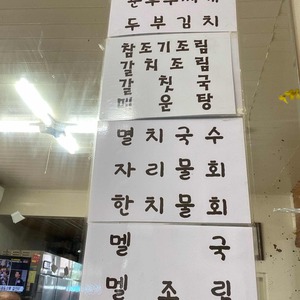 두부김치
참조기조림
갈치조림
갈칫국
매운탕
멸치국수
자리물회
한치물회
멜국
멜조림